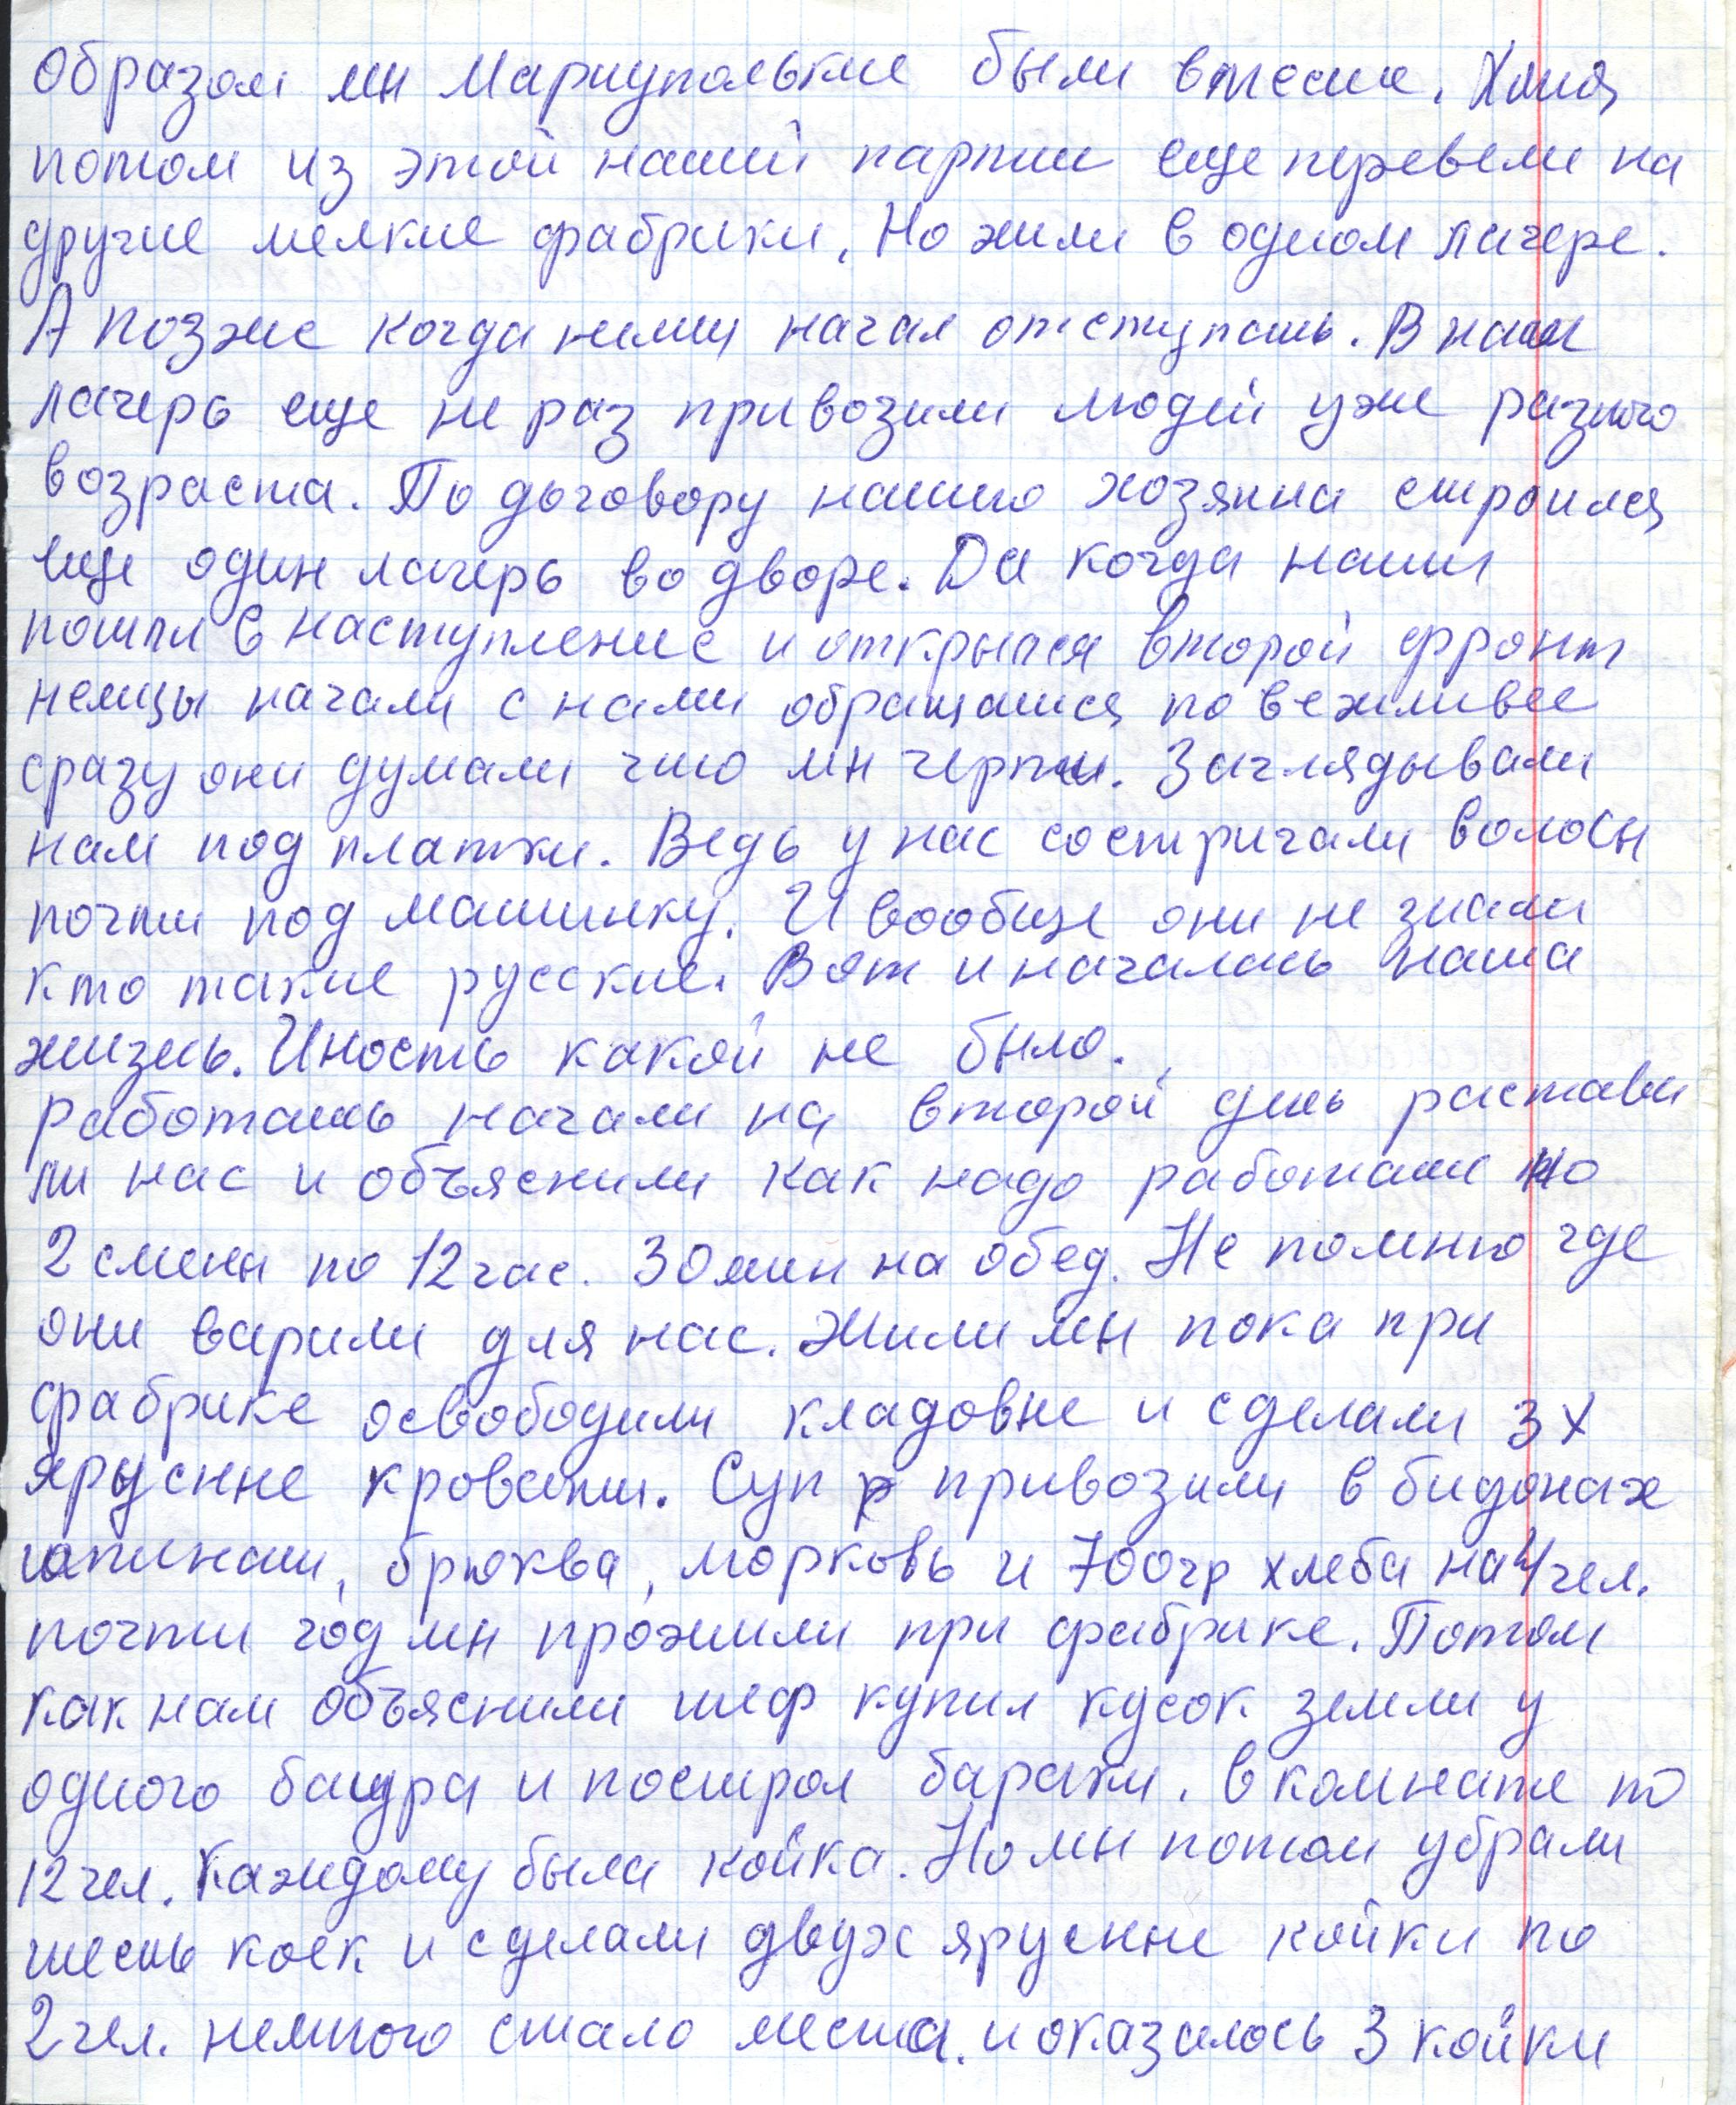 образом мы Мариупольские были вместе. Хотя
потом из этой нашей партии еще перевели на
другие мелкие фабрики. Но жили в одном лагере.
А позже когда немец начал отступать. В наш
лагерь еще не раз привозили людей уже разного
возраста. По договору нашего хозяина строился
еще один лагерь во дворе. Да когда наши
пошли в наступление и открылся второй фронт
немцы начали с нами обращатся по вежливее
сразу они думали что мы черти. Заглядывали
нам под платки. Ведь у нас состригали волосы
почти под машинку. И вообще они не знали
кто такие русские. Вот и началась наша
жизнь. Юность какой не было.
Работать начали на второй день растави
ли нас и объяснили как надо работали по
2 смены по 12 час. 30 мин на обед. Не помню где
они варили для нас. Жили мы пока при
фабрике освободили кладовые и сделали 3х
ярусные кровати. Суп привозили в бидонах
шпинат, брюква, морковь и 700гр хлеба на 4 чел.
почти год мы прожили при фабрике. Потом
как нам объяснили шеф купил кусок земли у
одного бауэра и построл бараки. в комнате по
12 чел. Каждому была койка. Но мы потом убрали
шесть коек и сделали двух ярусные койки по
2 чел. немного стало места. и оказалось 3 койки